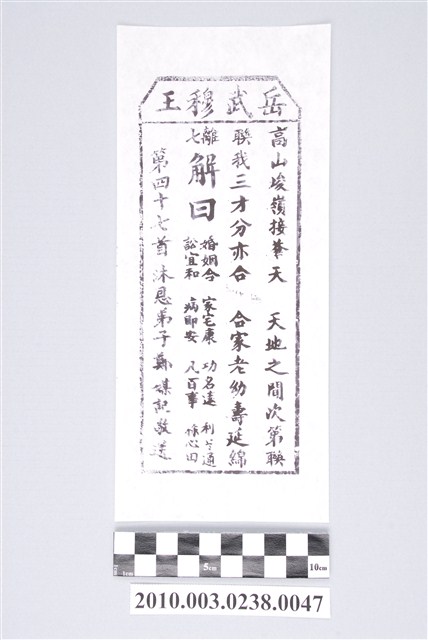 岳武穆王
高山峻嶺接蒼天　天地之間次第聯
聯我三才分亦合　合家老幼壽延綿
離七
解曰
婚姻合　家宅康　功名遠　利亨通
訟宜和　病即安　凡百事　稼心田
第四十七首　沐恩弟子鄭謀記敬送
1cm
5cm
10cm
2010.003.0238.0047